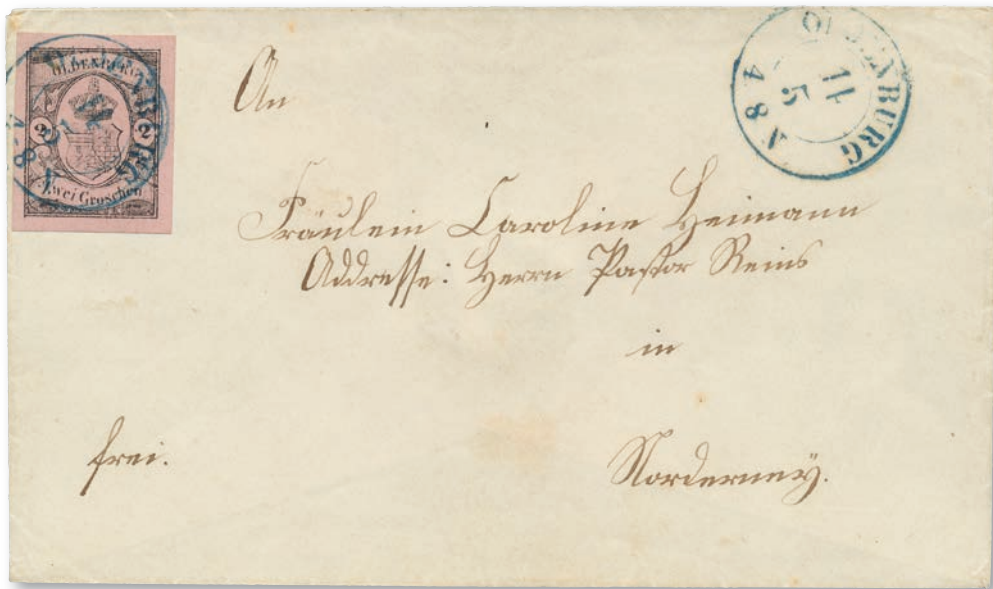 OLDENBURG
2 2
Zwei Groschen
OLDENBURG
11
5
4 8 N
An
Fräulein Caroline Heimann
Addresse: Herrn Pastor Reins
in
frei.
Norderney.